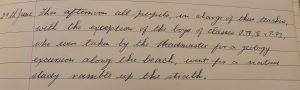 29th June This afternoon all pupils, in charge of their teachers,
with the exception of the boys of classes
who were taken by the Headmaster for a geology
excursion along the beach, went for a nature
study ramble up the strath.